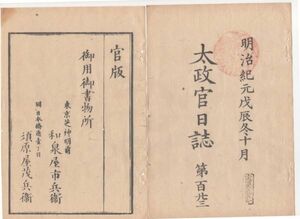 明治紀元戊辰冬十月
太政官日誌 第百廿三
官版
御用御書物所
東京芝神明前
和泉屋市兵衛
同日本橋通壹丁目
須原屋茂兵衛